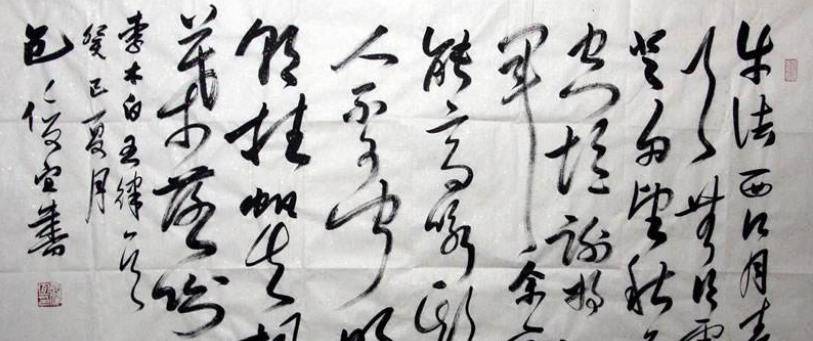 牛渚西江月青
天無片雲
登舟望秋月
空憶謝將
軍余亦
能高詠斯
人不可聞明
朝挂帆去楓
葉落紛
李太白五律一首
癸巳夏月
包俊宜書